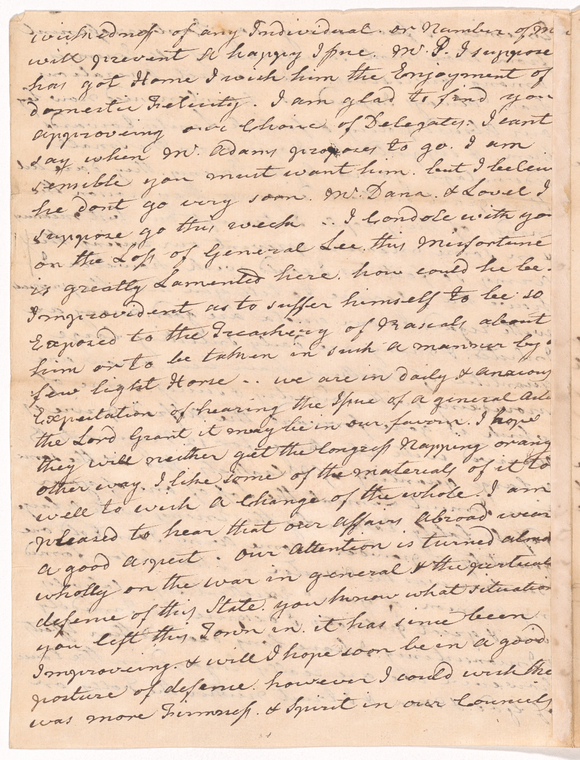 wickedness of any Individual or Number of M
will prevent a happy Issue. Mr. P. I suppose
has got Home I wish him the Enjoyment of
domestic Felicity. I am glad to find you
approveing our Choice of Delegates. I cant
say when Mr. Adams proposes to go. I am
sensible you must want him. but I beleiv
he dont go very soon. Mr. Dana. & Lovel I
suppose go this week .. I Condole with yo
on the Loss of General Lee, this Misfortune
is greatly Lamented here. how could he be
Improvident as to suffer himself to be so
Exposed to the Treachery of Rascals about
him or to be taken in such a manner by
few light Horse .. we are in daily & anxious
Expectation of hearing the Issue of a general Acti
the Lord Grant it may be in our favour. I hope
they will neither get the Congress Napping or any
other way. I like some of the materials of it to
well to wish a Change of the whole. I am
pleased to hear that our Affairs Abroad wear
a good aspect. Our Attention is turned almo
wholly on the war in general & the perticula
defense of this State. you know what situation
you left this Town in. it has since been
Improveing. & will I hope soon be in a good
posture of defense however I could wish the
was more Firmness. & Spirit in our Councils